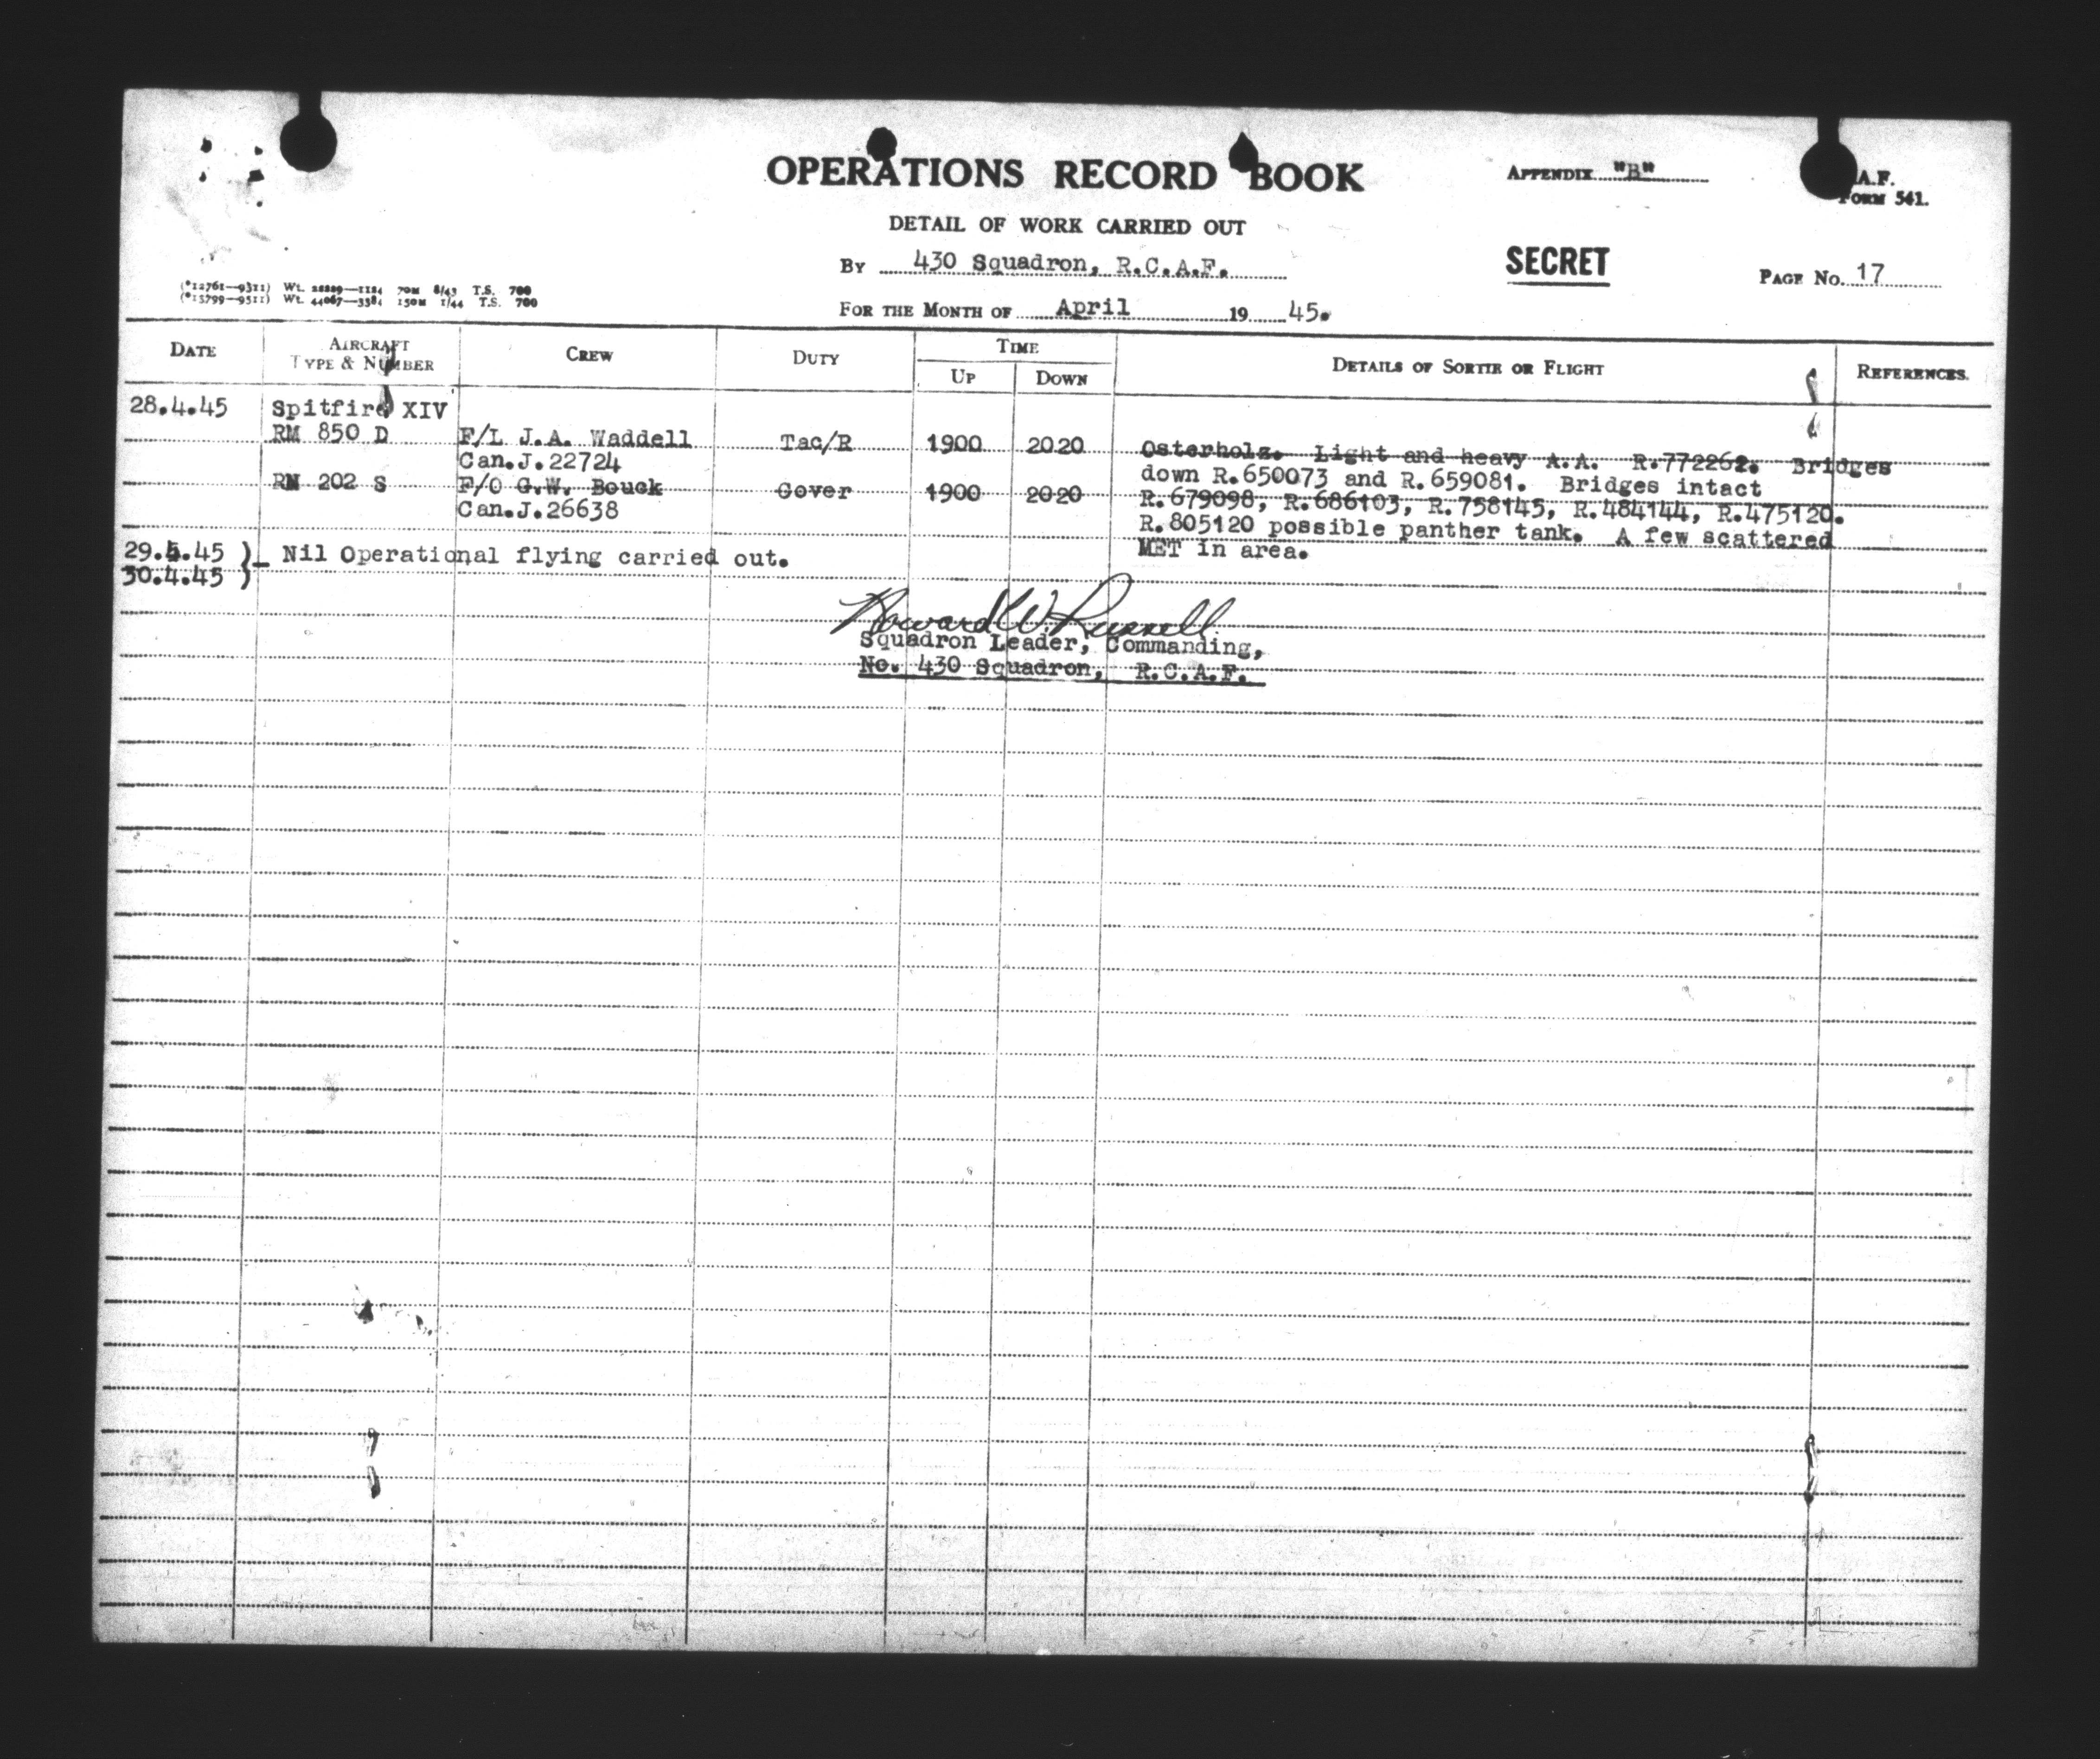 OPERATIONS RECORD BOOK
APPENDIX "B"
A.F.
FORM 541.
DETAIL OF WORK CARRIED OUT
By 430 Squadron, R.C.A.F.
SECRET
PAGE No. 17
(*12761—9311) Wt. 28889—1184 70M 8/43 T.S. 700
(*13799—9511) Wt. 44067—3384 150M 1/44 T.S. 700
FOR THE MONTH OF April 19 45.
DATE AIRCRAFT TYPE & NUMBER CREW DUTY TIME UP DOWN DETAILS OF SORTIE OR FLIGHT REFERENCES.
28.4.45 Spitfire XIV
RM 850 D F/L J.A. Waddell Tac/R 1900 2020 Osterholz. Light and heavy A.A. R.772262. Bridges
Can.J.22724 down R.650073 and R.659081. Bridges intact
RN 202 S F/O G.W. Bouck Cover 1900 2020 R.679098, R.686103, R.758145, R.484144, R.475120.
Can.J.26638 R.805120 possible panther tank. A few scattered
MET in area.
29.4.45 )
30.4.45 )- Nil Operational flying carried out.
Howard W. Russell
Squadron Leader, Commanding,
No. 430 Squadron, R.C.A.F.